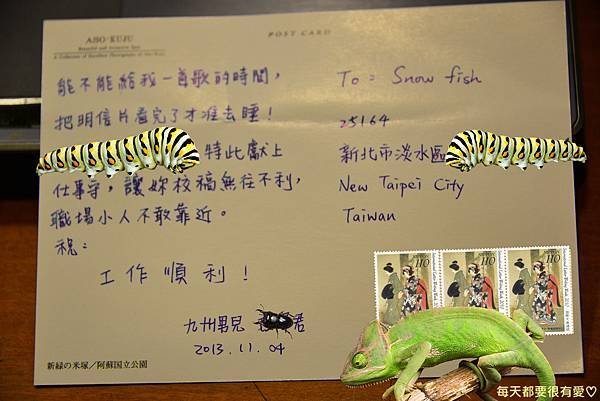 ASO-KUJU
POST CARD
能不能給我一首歌的時間，
把明信片看完了才准去睡！
特此獻上
仕事守，讓妳校福無往不利，
職場小人不敢靠近。
祝：
工作順利！
九州男兒
君
2013.11.04
新緑の米塚／阿蘇国立公園
To: Snow fish
25164
新北市淡水區
New Taipei City
Taiwan
110
110
110
每天都要很有愛♡